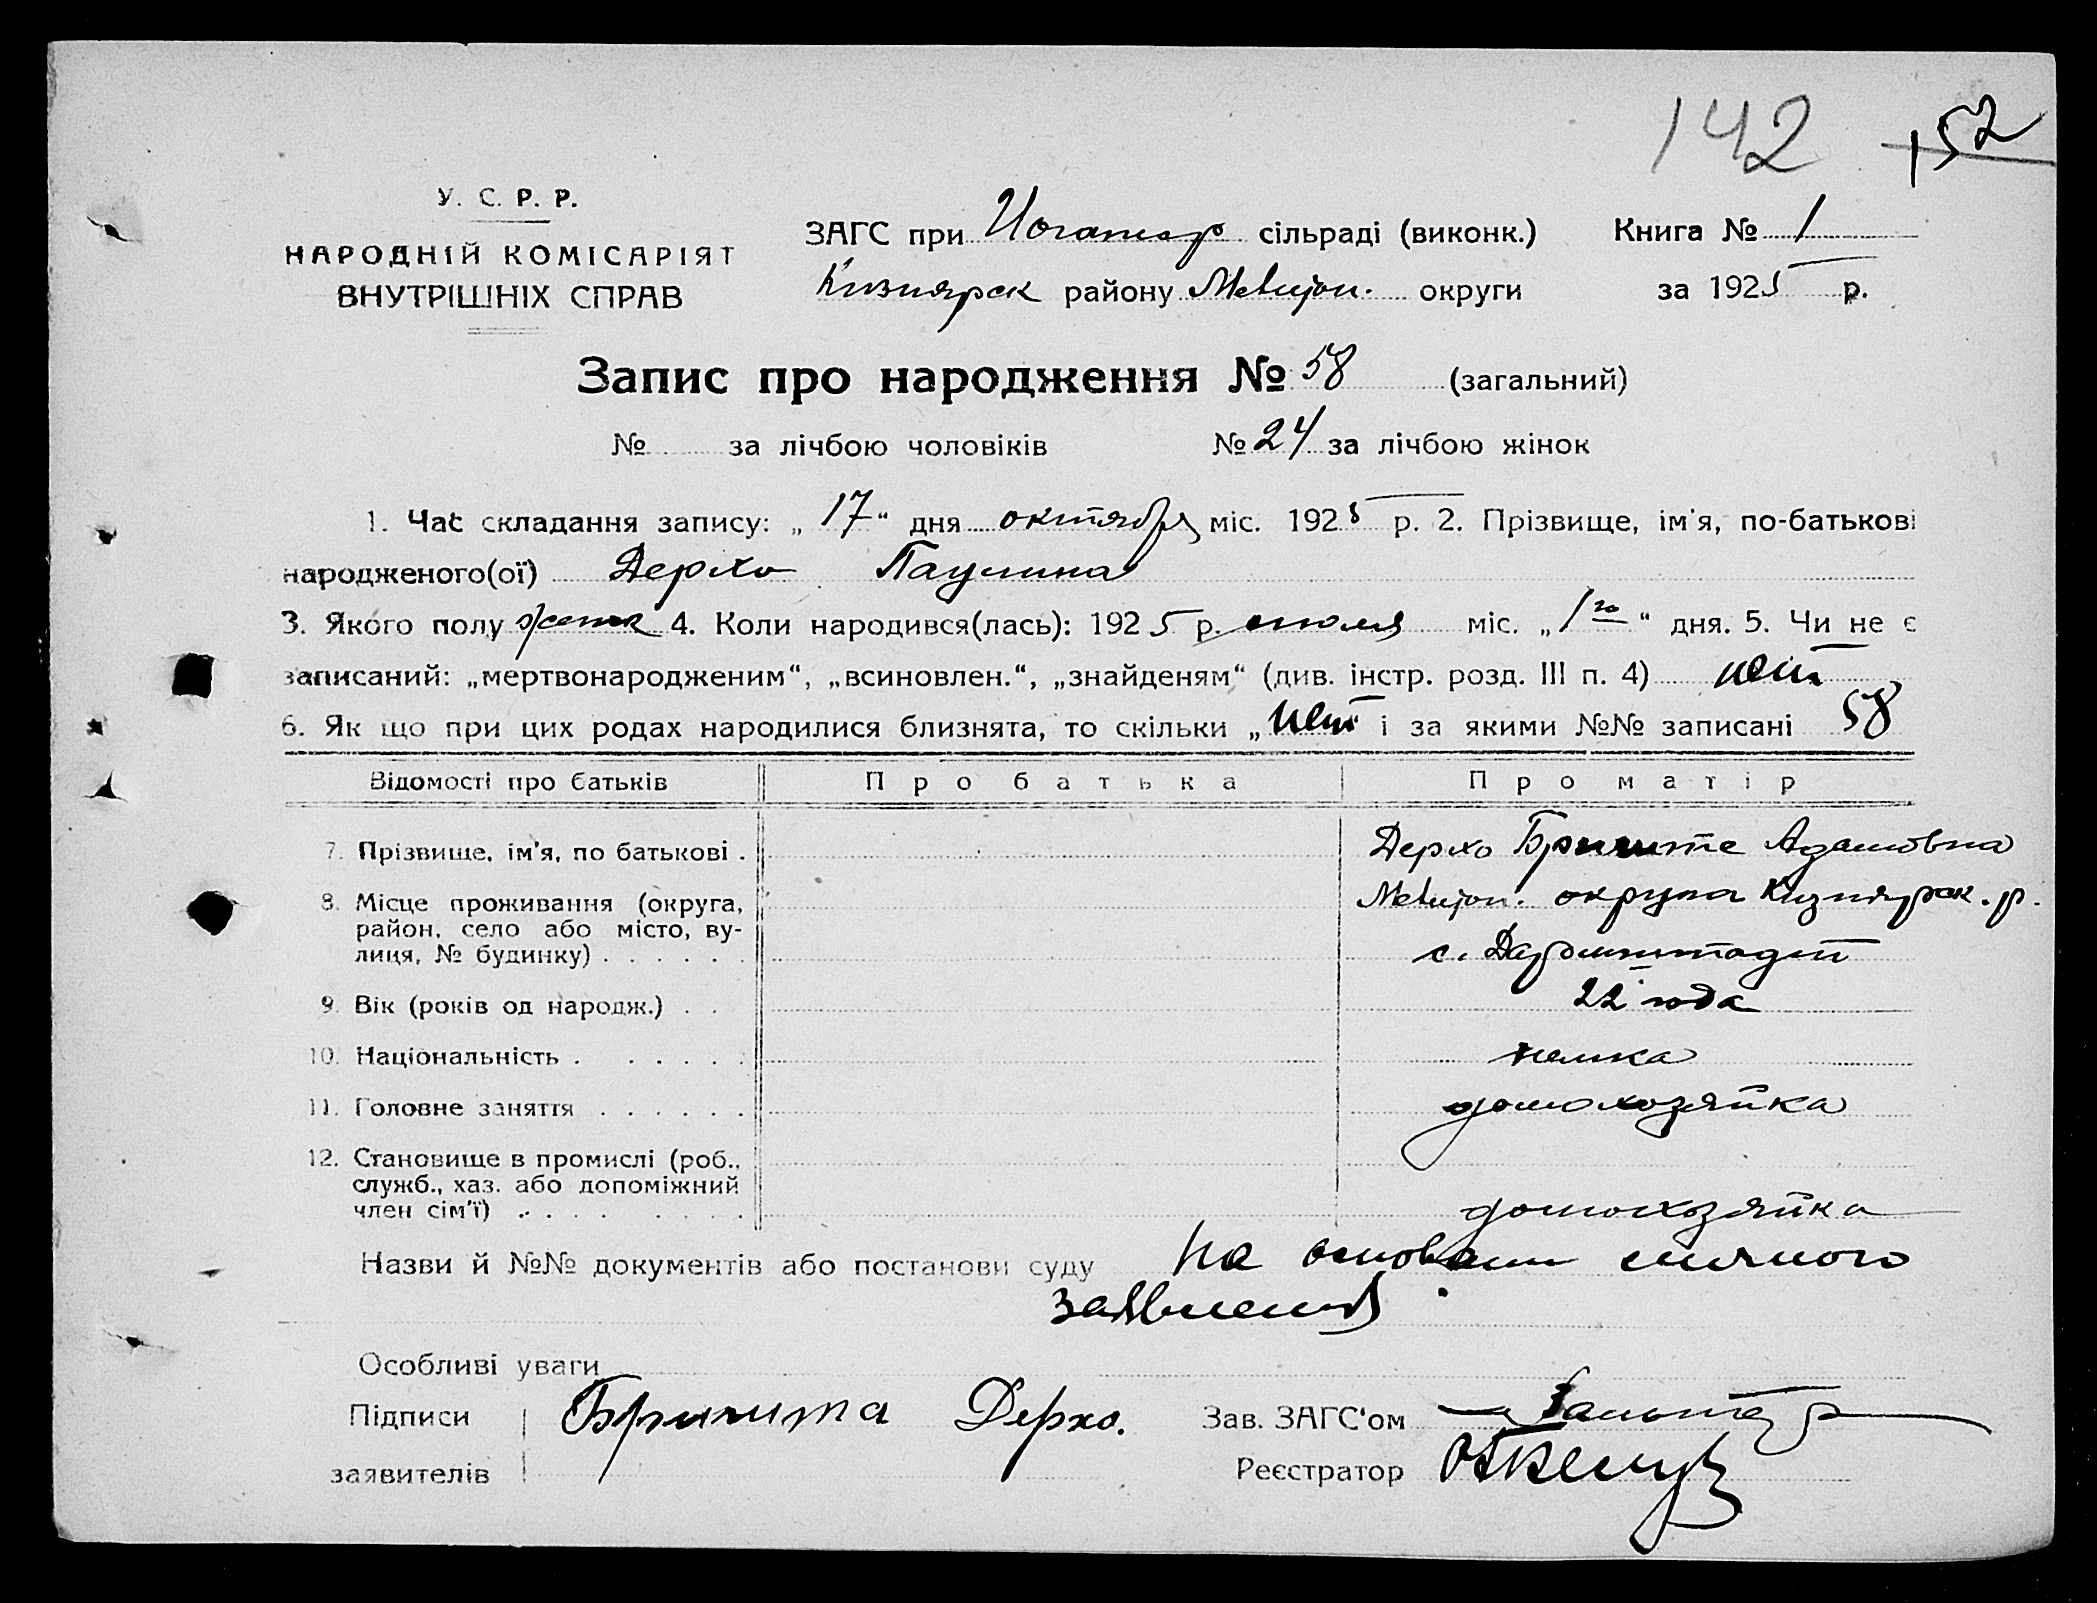 142 152
У. С. Р. Р.
НАРОДНІЙ КОМІСАРІЯТ
ВНУТРІШНІХ СПРАВ
ЗАГС при сільраді (виконк.) Книга № 1
Кизиярск району Мелитоп. округи за 1925 р.
Запис про народження № 58 (загальний)
№ за лічбою чоловіків № 24 за лічбою жінок
1. Час складання запису: „ 17 “ дня октября міс. 1925 р. 2. Прізвище, ім'я, по-батькові
народженого(ої) Дерхо Паулина
3. Якого полу женск 4. Коли народився(лась): 1925 р. июля міс. „ 1го “ дня. 5. Чи не є
записаний: „мертвонародженим“, „всиновлен.“, „знайденям“ (див. інстр. розд. III п. 4) нет
6. Як що при цих родах народилися близнята, то скільки „ нет і за якими №№ записані 58
Відомості про батьків Про батька Про матір
7. Прізвище, ім'я, по батькові . Дерхо Адамовна
8. Місце проживання (округа, Мелитоп. округа Кизиярск. р.
район, село або місто, ву- с. Дармштадт
лиця, № будинку) . . . . . .
9. Вік (років од народж.) . . 22 года
10. Національність . . . . . . немка
11. Головне заняття . . . . . . домохозяйка
12. Становище в промислі (роб.,
служб., хаз. або допоміжний
член сім'ї) . . . . . . . . . домохозяйка
Назви й №№ документів або постанови суду На основании
заявления
Особливі уваги
Підписи Дерхо. Зав. ЗАГС'ом
заявителів Реєстратор